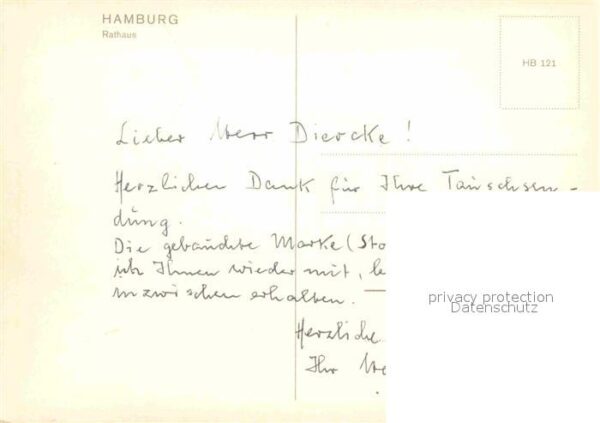 HAMBURG
Rathaus
HB 121
Lieber Herr Diercke!
Herzlichen Dank für Ihre Tauschsen-
dung.
Die gebäudte Marke (Sto
ich Ihnen wieder mit,
inzwischen erhalten.
Herzliche
Ihr
privacy protection
Datenschutz